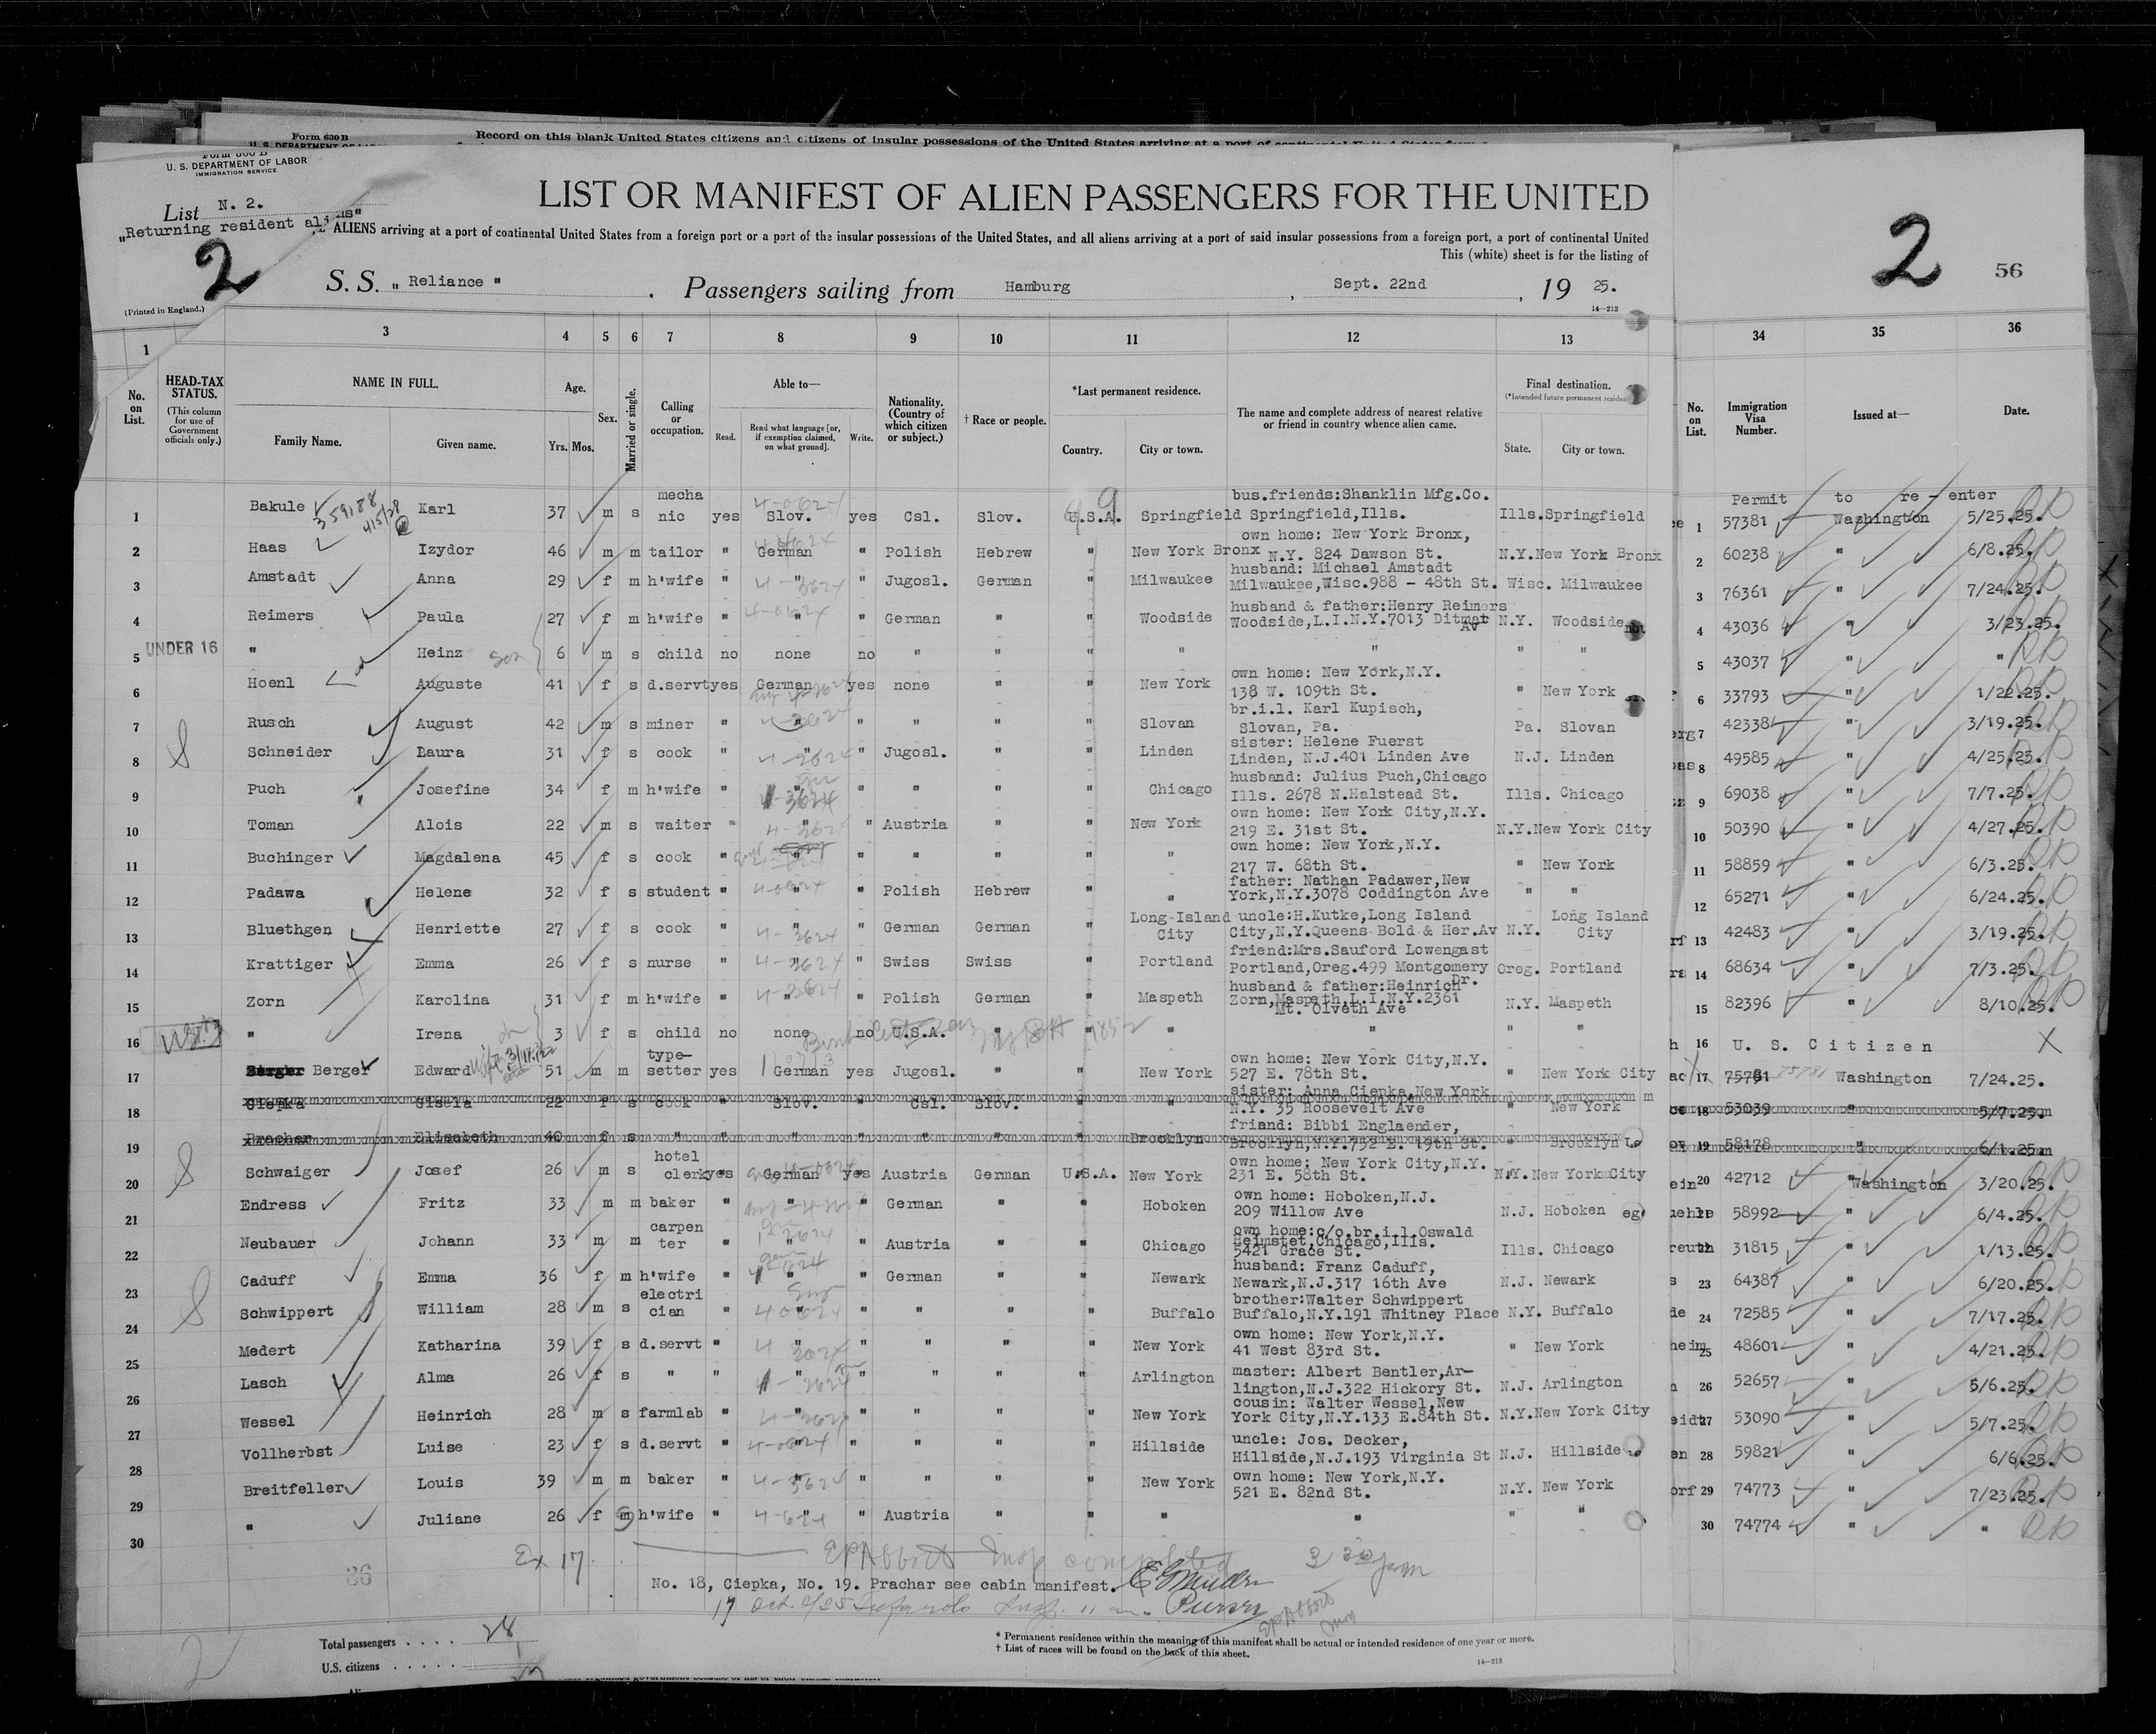 Form 630 B
Record on this blank United States citizens and citizens of insular possessions of the United States arriving at a port of continental United States from a
U. S. DEPARTMENT OF LABOR
IMMIGRATION SERVICE
List N. 2.
„Returning resident aliens"
LIST OR MANIFEST OF ALIEN PASSENGERS FOR THE UNITED
ALIENS arriving at a port of continental United States from a foreign port or a port of the insular possessions of the United States, and all aliens arriving at a port of said insular possessions from a foreign port, a port of continental United
This (white) sheet is for the listing of
2
2
56
S. S. „ Reliance " . Passengers sailing from Hamburg , Sept. 22nd , 19 25.
(Printed in England.)
14—213
1 3 4 5 6 7 8 9 10 11 12 13 34 35 36
No. on List.
HEAD-TAX STATUS.
(This column for use of Government officials only.)
NAME IN FULL.
Family Name. Given name.
Age.
Yrs. Mos.
Sex.
Married or single.
Calling or occupation.
Able to—
Read. Read what language [or, if exemption claimed, on what ground]. Write.
Nationality. (Country of which citizen or subject.)
† Race or people.
*Last permanent residence.
Country. City or town.
The name and complete address of nearest relative or friend in country whence alien came.
Final destination.
(*Intended future permanent residence
State. City or town.
No. on List. Immigration Visa Number. Issued at— Date.
Permit to re - enter
1 Bakule Karl 37 m s mecha nic yes Slov. yes Csl. Slov. U.S.A. Springfield bus.friends:Shanklin Mfg.Co. Springfield,Ills. Ills. Springfield 1 57381 Washington 5/25.25.
359188
2 Haas Izydor 46 m m tailor " German " Polish Hebrew " New York Bronx own home: New York Bronx, N.Y. 824 Dawson St. N.Y. New York Bronx 2 60238 " 6/8.25.
3 Amstadt Anna 29 f m h'wife " " " Jugosl. German " Milwaukee husband: Michael Amstadt Milwaukee,Wisc.988 - 48th St. Wisc. Milwaukee 3 76361 " 7/24.25.
4 Reimers Paula 27 f m h'wife " " " German " " Woodside husband & father:Henry Reimers Woodside,L.I.N.Y.7013 Ditmar Av N.Y. Woodside 4 43036 " 3/23.25.
5 UNDER 16 " Heinz son 6 m s child no none no " " " " " " " 5 43037 " "
6 Hoenl Auguste 41 f s d.servt yes German yes none " " New York own home: New York,N.Y. 138 W. 109th St. " New York 6 33793 " 1/22.25.
7 Rusch August 42 m s miner " " " " " " Slovan br.i.l. Karl Kupisch, Slovan, Pa. Pa. Slovan 7 42338 " 3/19.25.
8 Schneider Laura 31 f s cook " " " Jugosl. " " Linden sister: Helene Fuerst Linden, N.J.401 Linden Ave N.J. Linden 8 49585 " 4/25.25.
9 Puch Josefine 34 f m h'wife " " " " " " Chicago husband: Julius Puch,Chicago Ills. 2678 N.Halstead St. Ills. Chicago 9 69038 " 7/7.25.
10 Toman Alois 22 m s waiter " " " Austria " " New York own home: New York City,N.Y. 219 E. 31st St. N.Y. New York City 10 50390 " 4/27.25.
11 Buchinger Magdalena 45 f s cook " " " " " " " own home: New York,N.Y. 217 W. 68th St. " New York 11 58859 " 6/3.25.
12 Padawa Helene 32 f s student " " " Polish Hebrew " " father: Nathan Padawer,New York,N.Y.3078 Coddington Ave " " 12 65271 " 6/24.25.
13 Bluethgen Henriette 27 f s cook " " " German German " Long-Island City uncle:H.Kutke,Long Island City,N.Y.Queens Bold & Her.Av N.Y. Long Island City 13 42483 " 3/19.25.
14 Krattiger Emma 26 f s nurse " " " Swiss Swiss " Portland friend:Mrs.Sauford Lowengast Portland,Oreg.499 Montgomery Dr. Oreg. Portland 14 68634 " 7/3.25.
15 Zorn Karolina 31 f m h'wife " " " Polish German " Maspeth husband & father:Heinrich Zorn,Maspeth L.I.N.Y.2361 Mt. Olveth Ave N.Y. Maspeth 15 82396 " 8/10.25.
16 " Irena 3 f s child no none no U.S.A. " " " " " " 16 U. S. Citizen
17 Berger Berger Edward 51 m m type- setter yes German yes Jugosl. " " New York own home: New York City,N.Y. 527 E. 78th St. " New York City 17 75781 75781 Washington 7/24.25.
18 Ciepka Gisela 22 f s cook " Slov. " Csl. Slov. " " sister: Anna Ciepka,New York N.Y. 35 Roosevelt Ave " New York 18 53039 " 5/7.25.
19 Prachar Elisabeth 40 f s " " " " " " " Brooklyn friand: Bibbi Englaender, Brooklyn,N.Y.752 E. 19th St. " Brooklyn 19 58178 " 6/1.25.
20 Schwaiger Josef 26 m s hotel clerk yes German yes Austria German U.S.A. New York own home: New York City,N.Y. 231 E. 58th St. N.Y. New York City 20 42712 Washington 3/20.25.
21 Endress Fritz 33 m m baker " " " German " " Hoboken own home: Hoboken,N.J. 209 Willow Ave N.J. Hoboken 58992 " 6/4.25.
22 Neubauer Johann 33 m m carpen ter " " " Austria " " Chicago own home:c/o.br.i.l.Oswald Heimstet,Chicago,Ills. 5421 Grace St. Ills. Chicago 22 31815 " 1/13.25.
23 Caduff Emma 36 f m h'wife " " " German " " Newark husband: Franz Caduff, Newark,N.J.317 16th Ave N.J. Newark 23 64387 " 6/20.25.
24 Schwippert William 28 m s electri cian " " " " " " Buffalo brother:Walter Schwippert Buffalo,N.Y.191 Whitney Place N.Y. Buffalo 24 72585 " 7/17.25.
25 Medert Katharina 39 f s d.servt " " " " " " New York own home: New York,N.Y. 41 West 83rd St. " New York 25 48601 " 4/21.25.
26 Lasch Alma 26 f s " " " " " " " Arlington master: Albert Bentler,Ar- lington,N.J.322 Hickory St. N.J. Arlington 26 52657 " 5/6.25.
27 Wessel Heinrich 28 m s farmlab " " " " " " New York cousin: Walter Wessel,New York City,N.Y.133 E.84th St. N.Y. New York City 27 53090 " 5/7.25.
28 Vollherbst Luise 23 f s d.servt " " " " " " Hillside uncle: Jos. Decker, Hillside,N.J.193 Virginia St N.J. Hillside 28 59821 " 6/6.25.
29 Breitfeller Louis 39 m m baker " " " " " " New York own home: New York,N.Y. 521 E. 82nd St. N.Y. New York 29 74773 " 7/23.25.
30 " Juliane 26 f m h'wife " " " Austria " " " " " " 30 74774 " "
Ex 17. EPAbbott Insp completed 3 30 pm
86
No. 18, Ciepka, No. 19. Prachar see cabin manifest.
Purser
Total passengers . . . . 28
U.S. citizens . . . . . 1
* Permanent residence within the meaning of this manifest shall be actual or intended residence of one year or more.
† List of races will be found on the back of this sheet.
14—213
2